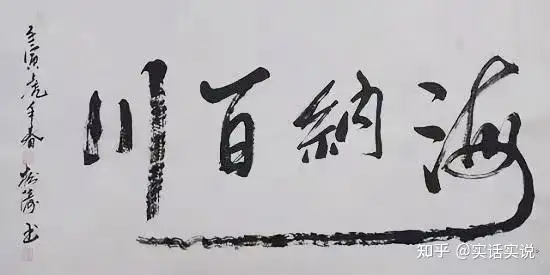 海納百川
壬寅虎年春 松涛书
知乎 @实话实说